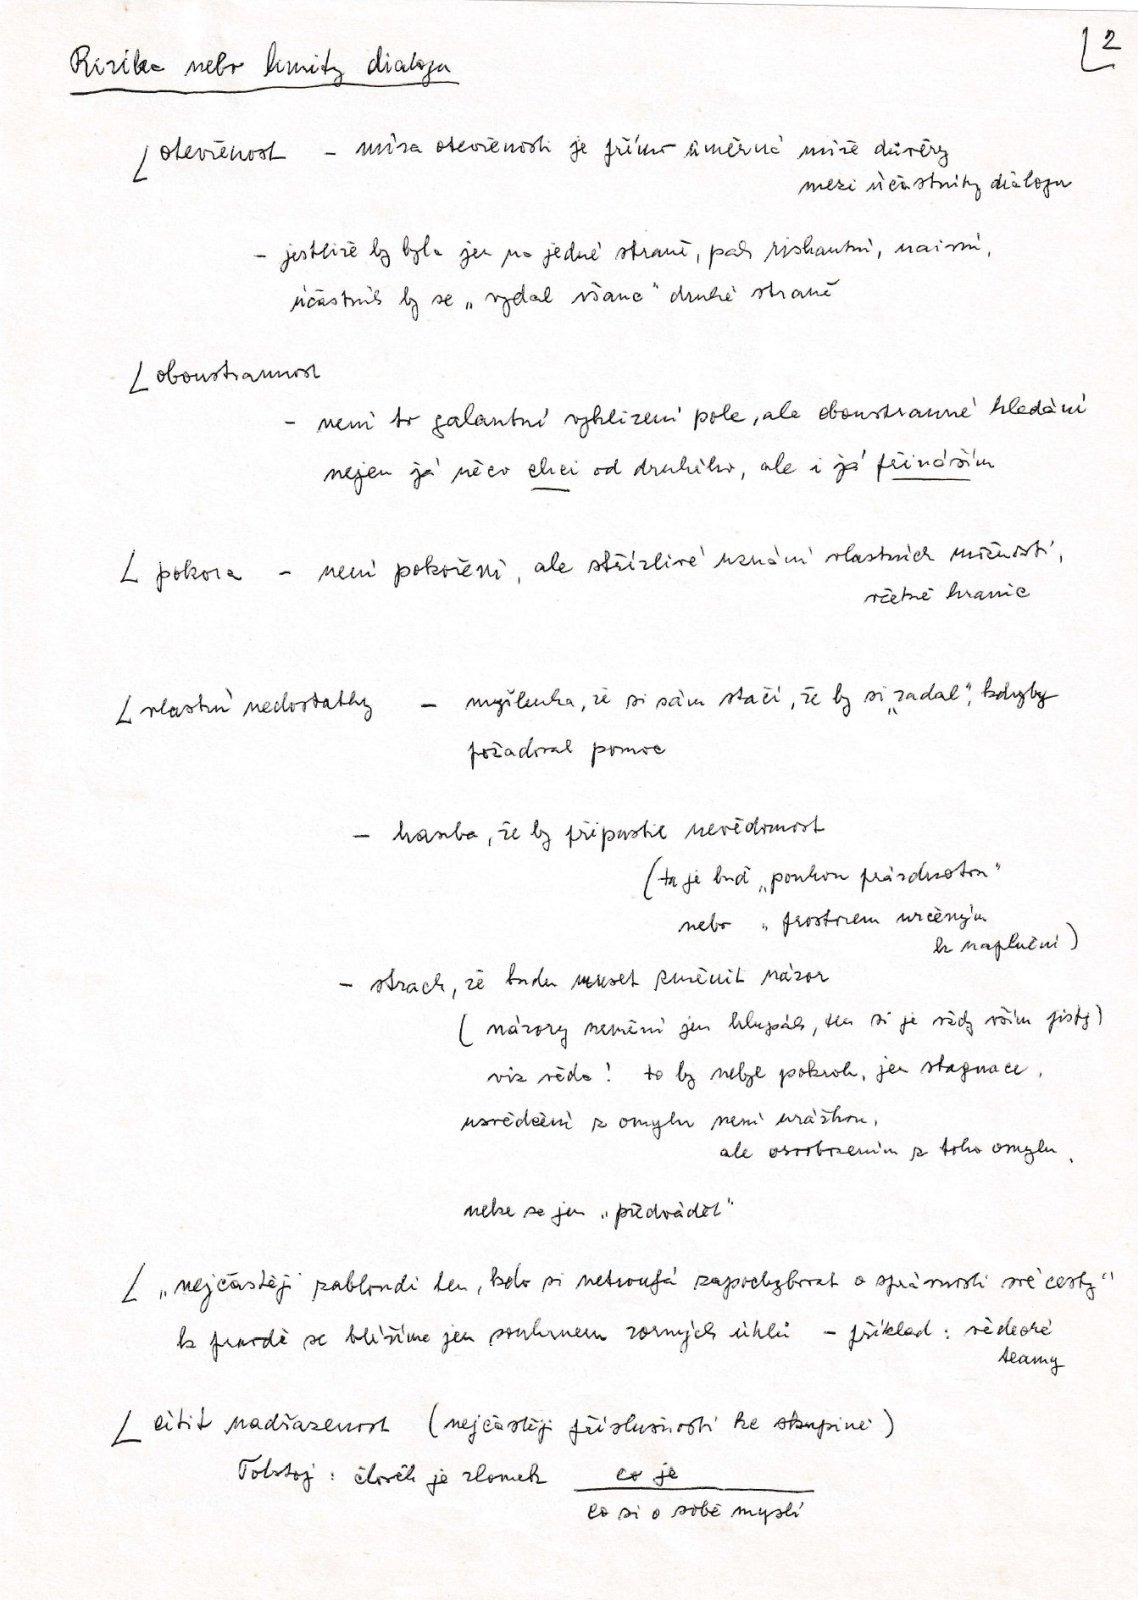 2
Rizika nebo limity dialogu
otevřenost – míra otevřenosti je přímo úměrná míře důvěry
mezi účastníky dialogu
– jestliže by byla jen na jedné straně, pak riskantní, naivní,
účastník by se „vydal všanc" druhé straně
oboustrannost
– není to galantní vyklizení pole, ale oboustranné hledání
nejen já něco chci od druhého, ale i já přináším
pokora – není pokoření, ale střízlivé uznání vlastních možností,
včetně hranic
vlastní nedostatky – myšlenka, že si sám stačí, že by si „zadal", kdyby
požadoval pomoc
– hanba, že by připustil nevědomost
(ta je buď „pouhou prázdnotou"
nebo „prostorem určeným
k naplnění)
– strach, že budu muset změnit názor
(názory nemění jen hlupák, ten si je vždy vším jistý)
viz věda! to by nebyl pokrok, jen stagnace.
usvědčení z omylu není urážkou,
ale osvobozením z toho omylu.
nelze se jen „předvádět"
„nejčastěji zabloudí ten, kdo si netroufá zapochybovat o správnosti své cesty"
k pravdě se blížíme jen souhrnem zorných úhlů – příklad: vědecké
teamy
cítit nadřazenost (nejčastěji příslušností ke skupině)
Tolstoj: člověk je zlomek co je
co si o sobě myslí